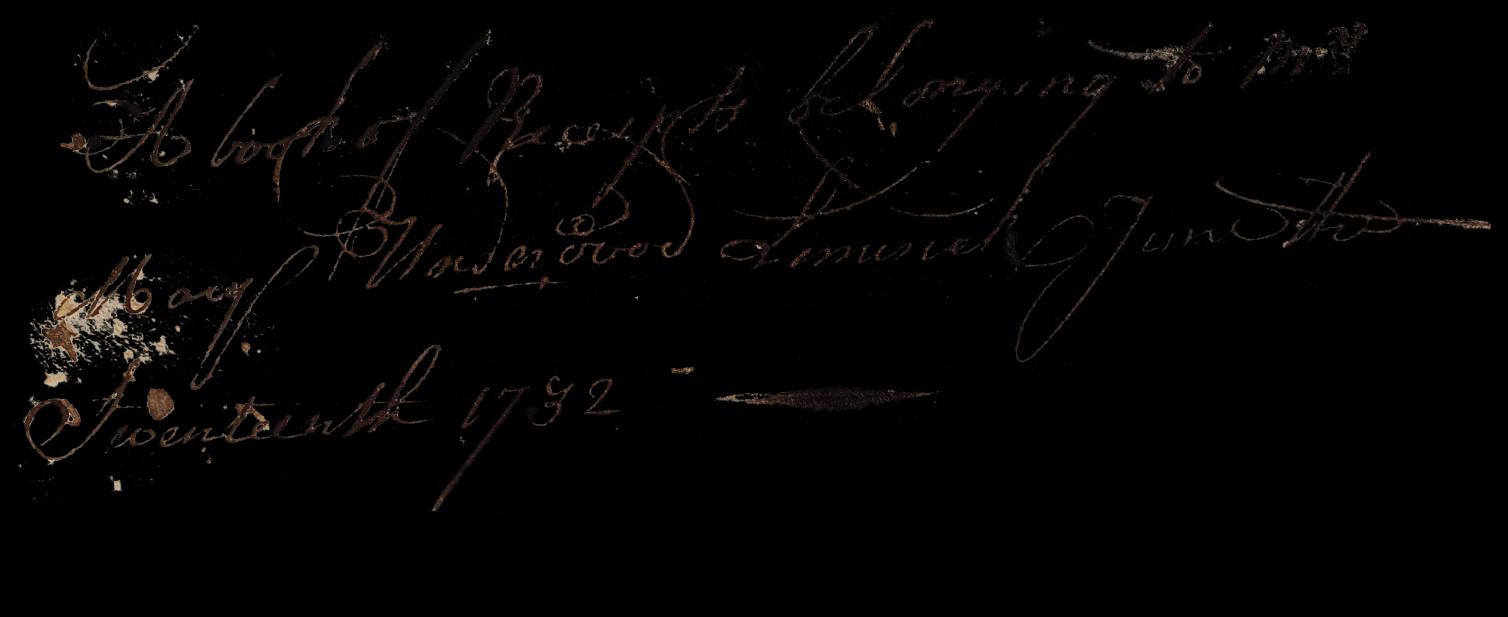 A book of Receipts belonging to Mrs
Mary Underwood Limerick June the
Seventeenth 1732